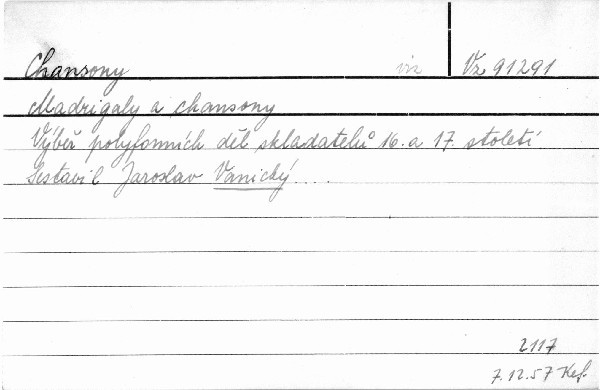 Chansony viz Vz 91291
Madrigaly a chansony
Výběr polyfonních děl skladatelů 16. a 17. století
Sestavil Jaroslav Vanický ...
2117
7.12.57 Kef.